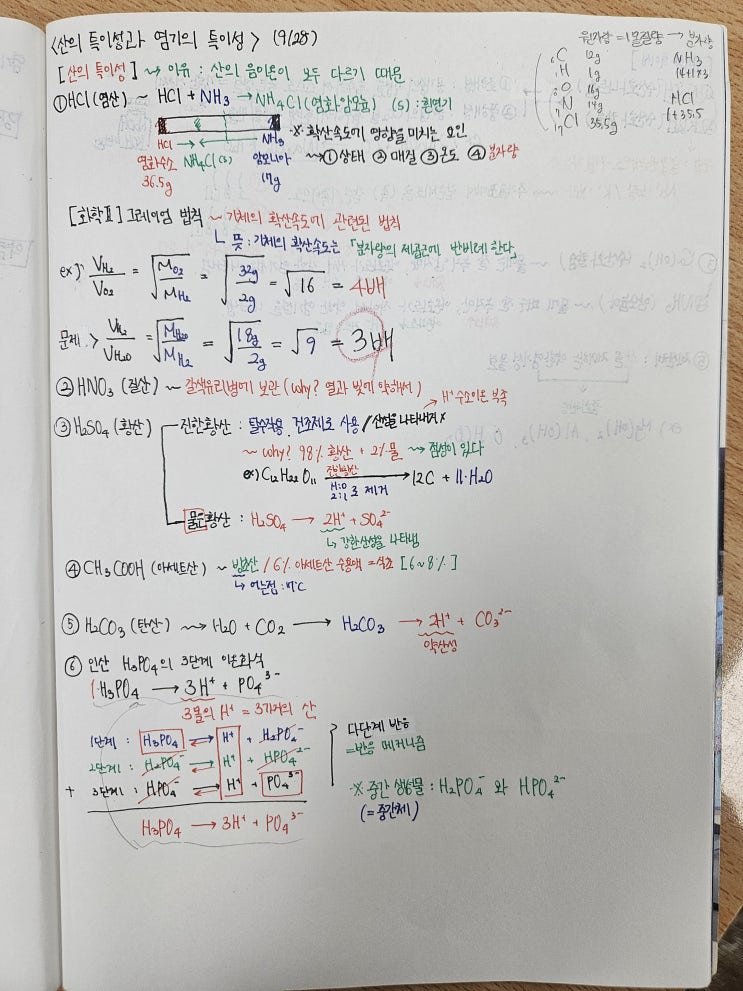 <산의 특이성과 염기의 특이성> (9/28)
원자량 = 1몰질량 → 분자량
₆C 12g
₁H 1g
₈O 16g
₇N 14g
₁₇Cl 35.5g
NH₃
14+1×3
HCl
1+35.5
[산의 특이성] ↝ 이유 : 산의 음이온이 모두 다르기 때문
① HCl (염산) ~ HCl + NH₃ → NH₄Cl (염화암모늄) (s) : 흰연기
HCl → ← NH₃
염화수소 NH₄Cl(s) 암모니아
36.5g 17g
※ 확산속도에 영향을 미치는 요인
↝ ① 상태 ② 매질 ③ 온도 ④ 분자량
[화학Ⅱ] 그레이엄 법칙 ~ 기체의 확산속도에 관련된 법칙
↳ 뜻 : 기체의 확산속도는 「분자량의 제곱근에 반비례 한다」
ex) V_H₂/V_O₂ = √(M_O₂/M_H₂) = √(32g/2g) = √16 = 4배
문제.> V_H₂/V_H₂O = √(M_H₂O/M_H₂) = √(18g/2g) = √9 = 3배
② HNO₃ (질산) ~ 갈색유리병에 보관 (why? 열과 빛에 약해서)
→ H⁺ 수소이온 부족
③ H₂SO₄ (황산) 진한황산 : 탈수작용, 건조제로 사용 / 산성을 나타내기 x
~ why? 98% 황산 + 2% 물 ↝ 점성이 있다
ex) C₁₂H₂₂O₁₁ 진한황산 → 12C + 11·H₂O
H:O
2:1로 제거
묽은황산 : H₂SO₄ → 2H⁺ + SO₄²⁻
↳ 강한산성을 나타냄
④ CH₃COOH (아세트산) ~ 빙초산 / 6% 아세트산 수용액 = 식초 [6~8%]
↳ 어는점 : 17℃
⑤ H₂CO₃ (탄산) ↝ H₂O + CO₂ → H₂CO₃ → 2H⁺ + CO₃²⁻
약산성
⑥ 인산 H₃PO₄의 3단계 이온화식
1·H₃PO₄ → 3H⁺ + PO₄³⁻
3몰의 H⁺ = 3가의 산
1단계 : H₃PO₄ ⇄ H⁺ + H₂PO₄⁻
2단계 : H₂PO₄⁻ ⇄ H⁺ + HPO₄²⁻
+ 3단계 : HPO₄⁻ ⇄ H⁺ + PO₄³⁻
H₃PO₄ → 3H⁺ + PO₄³⁻
다단계 반응
= 반응 메커니즘
※ 중간 생성물 : H₂PO₄⁻ 와 HPO₄²⁻
(= 중간체)